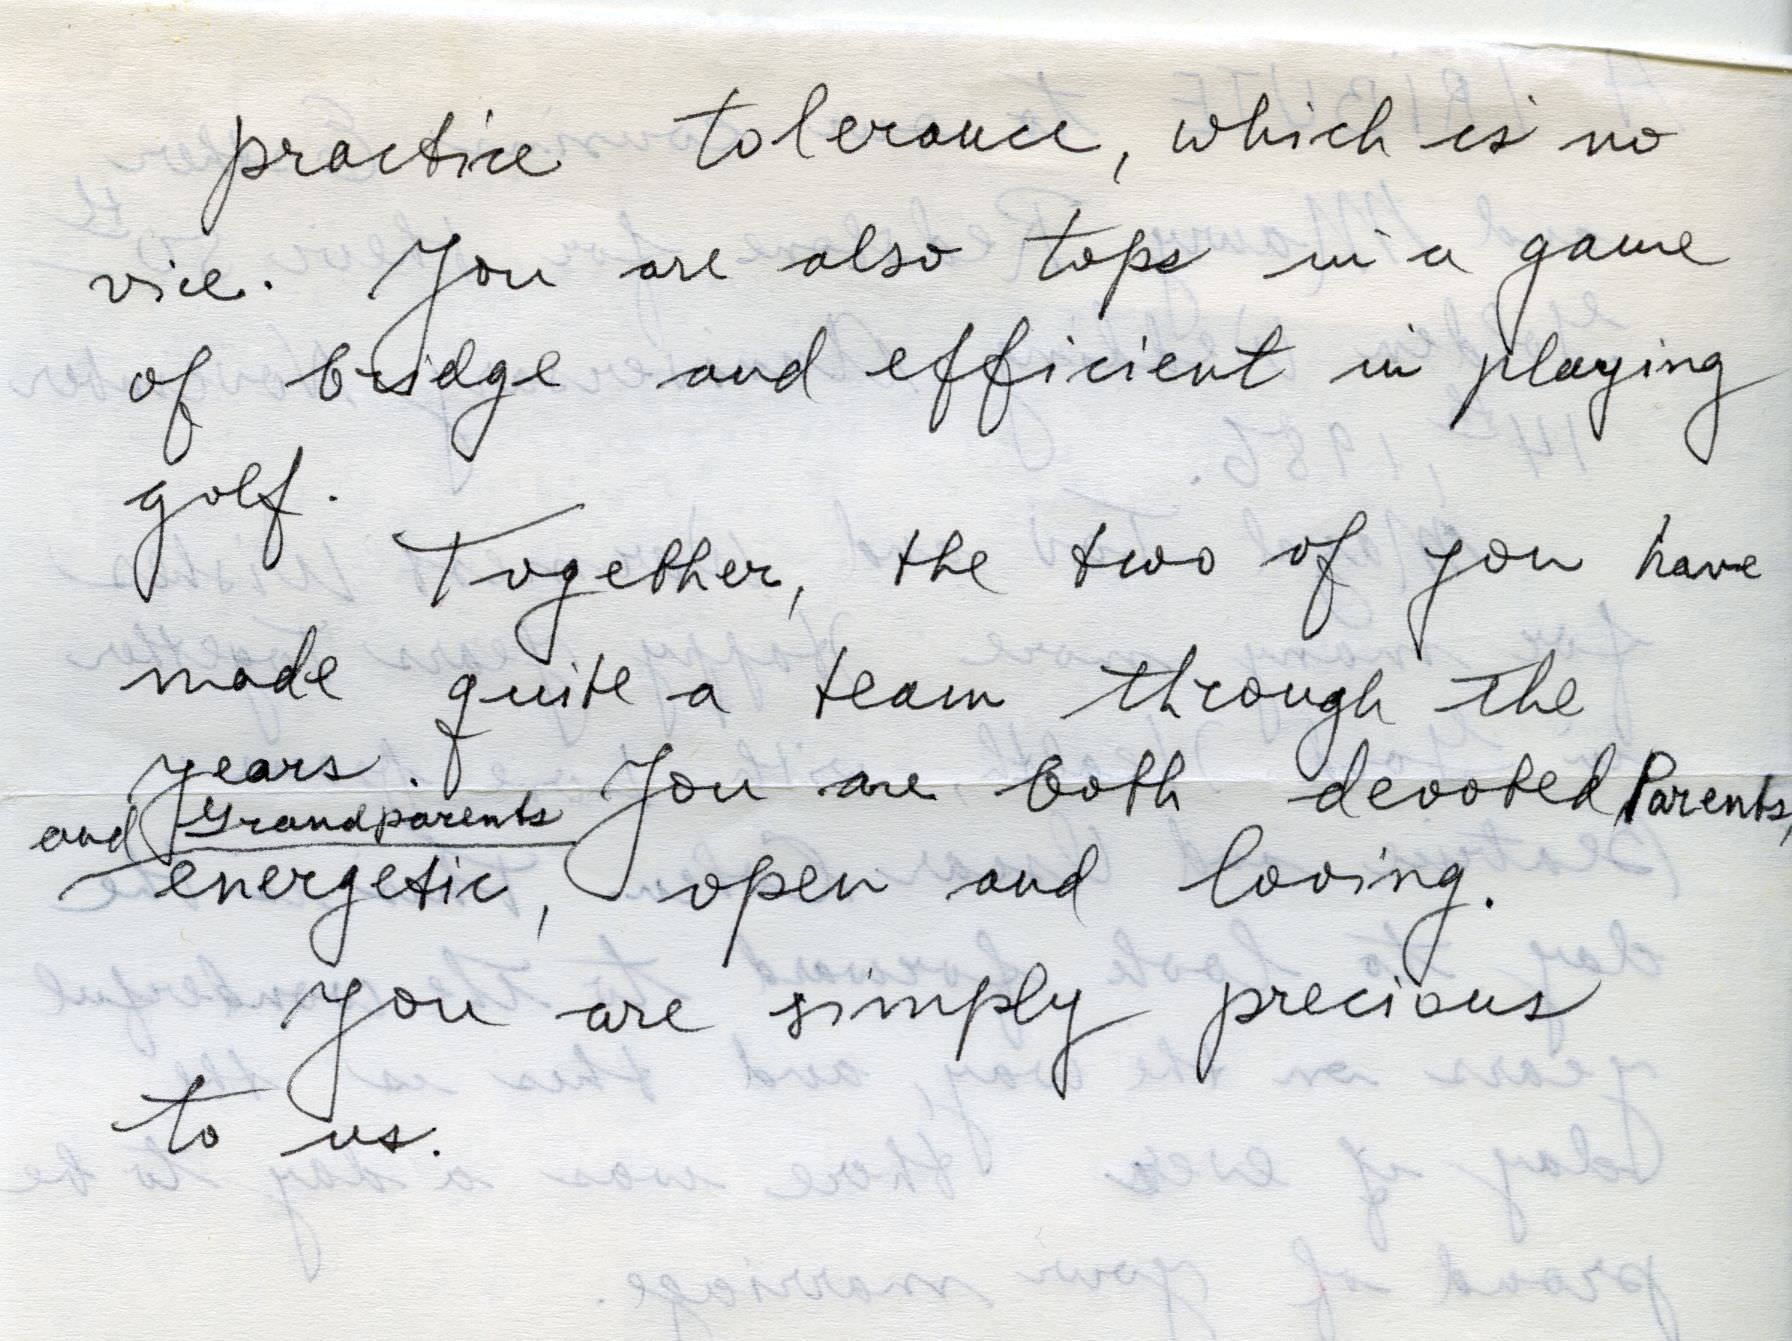 practice tolerance, which is no
vice. You are also tops in a game
of bridge and efficient in playing
golf.
Together, the two of you have
made quite a team through the
years. You are both devoted Parents,
and Grandparents
energetic, open and loving.
You are simply precious
to us.